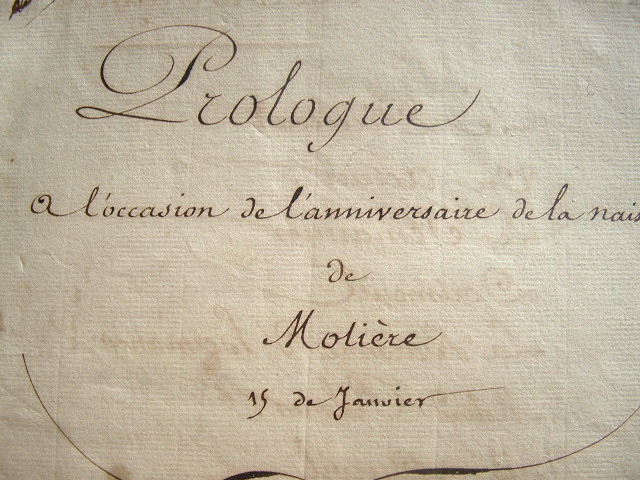 Prologue
A l'occasion de l'anniversaire de la nais
de
Molière
15 de Janvier